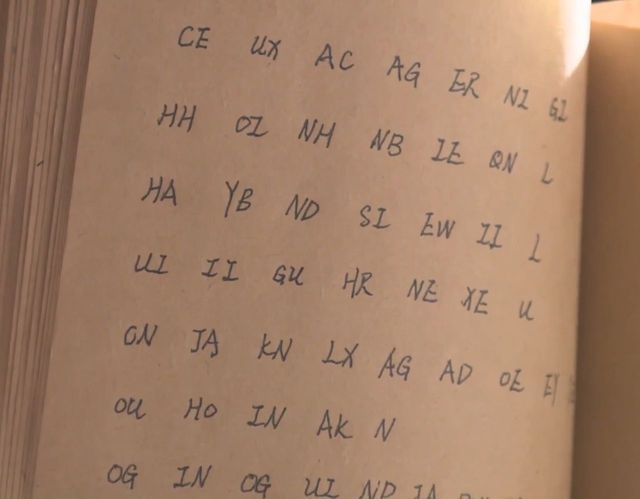 CE UX AC AG ER NI GI
HH OI NH NB IE QN L
HA YB ND SI EW II L
UI II GU HR NE XE U
ON JA KN LX AG AD OE EY
OU HO IN AK N
OG IN OG UI ND IA